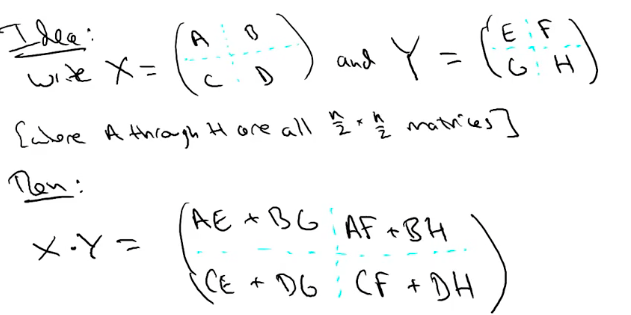 Idea:
Write X = (A B
C D) and Y = (E F
G H)
[where A through H are all n/2 × n/2 matrices]
Then:
X · Y = (AE + BG AF + BH
CE + DG CF + DH)